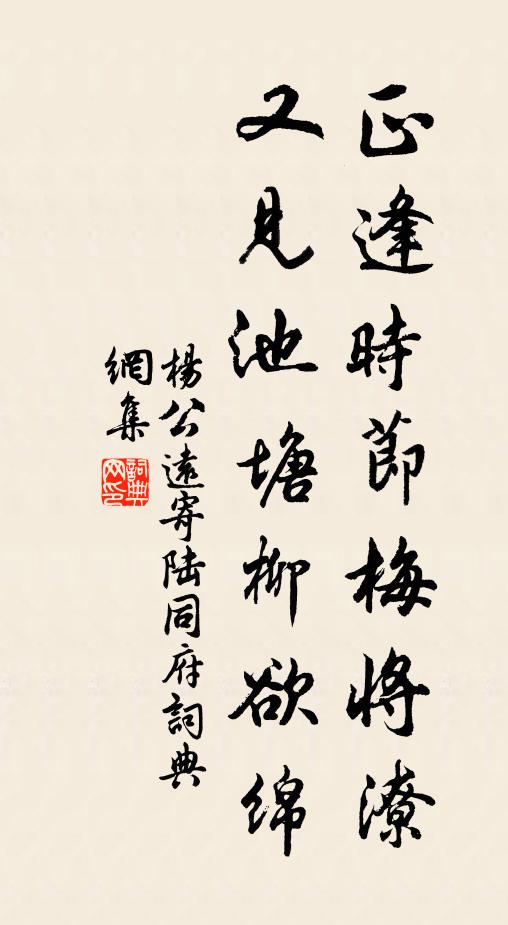 正逢時節梅將潦
又見池塘柳欲綿
楊公遠寄陸同府詞典
網集
詞典網印